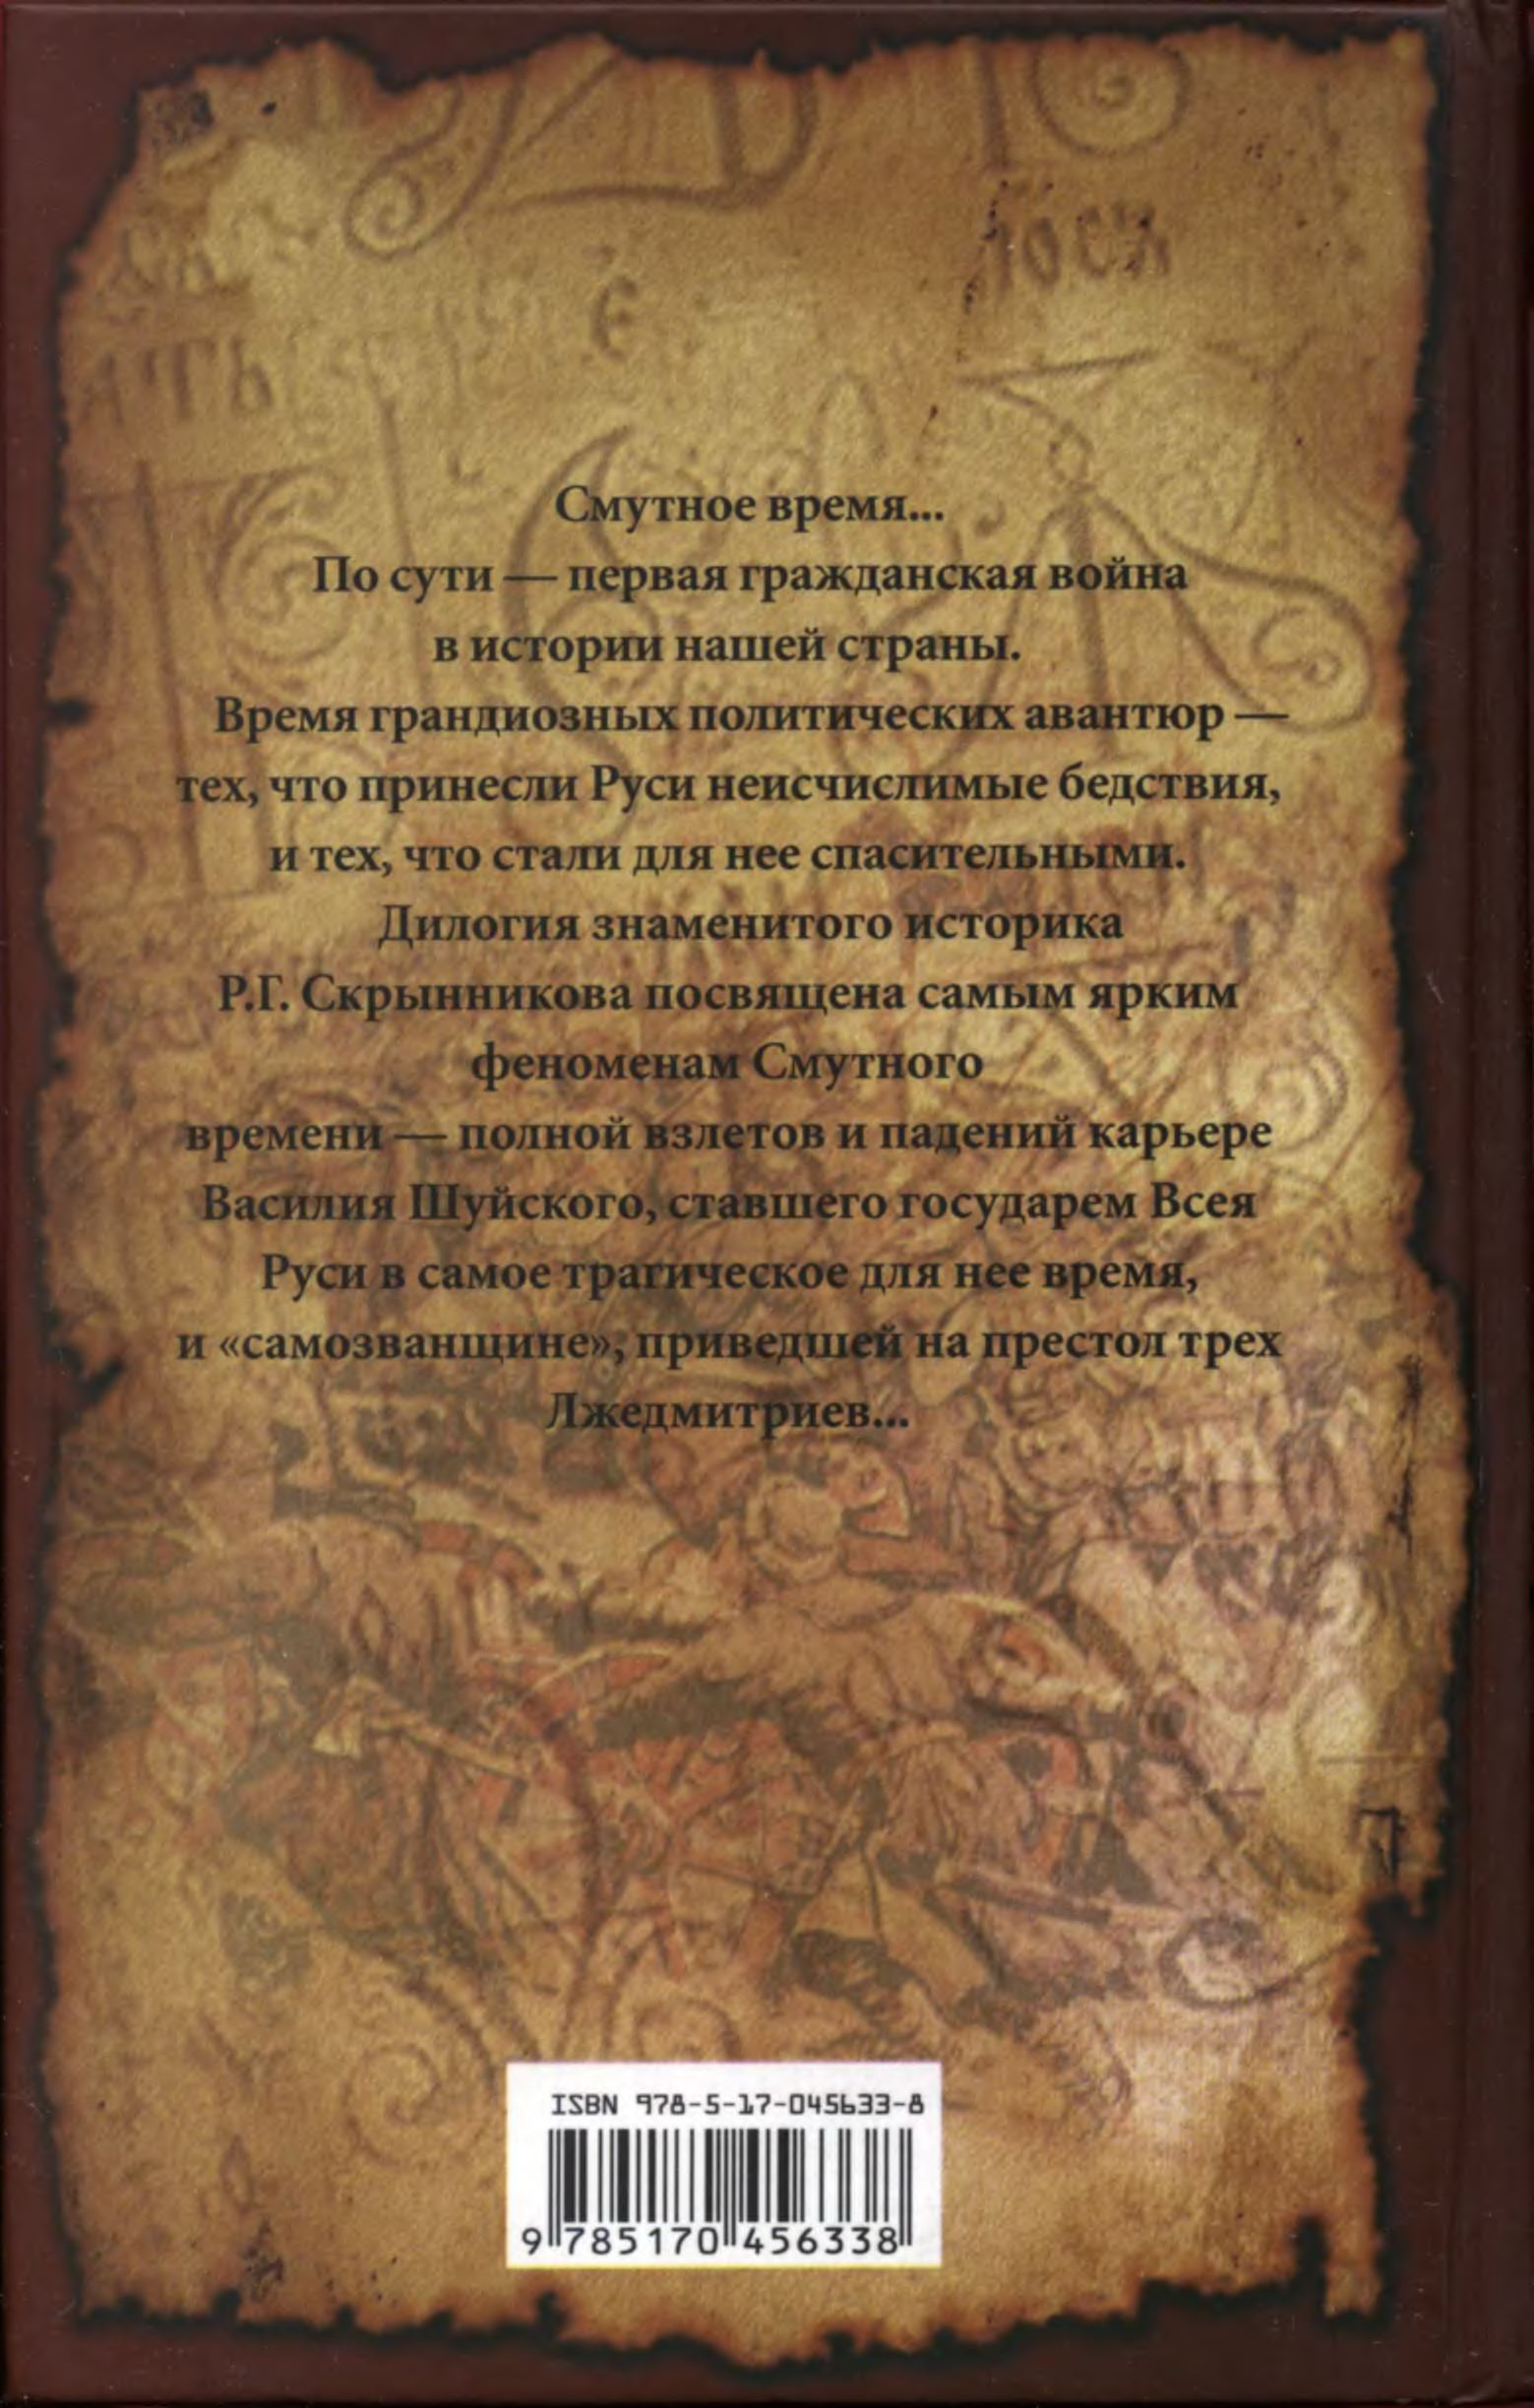 Смутное время...
По сути — первая гражданская война
в истории нашей страны.
Время грандиозных политических авантюр —
тех, что принесли Руси неисчислимые бедствия,
и тех, что стали для нее спасительными.
Дилогия знаменитого историка
Р.Г. Скрынникова посвящена самым ярким
феноменам Смутного
времени — полной взлетов и падений карьере
Василия Шуйского, ставшего государем Всея
Руси в самое трагическое для нее время,
и «самозванщине», приведшей на престол трех
Лжедмитриев...
ISBN 978-5-17-045633-8
9 785170 456338